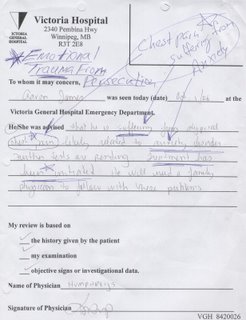 Victoria Hospital
2340 Pembina Hwy
Winnipeg, MB
R3T 2E8
VICTORIA
GENERAL
HOSPITAL
Chest Pain
suffering from
Anxiety
Emotional
Trauma From
Persecution
To whom it may concern,
James was seen today (date)
Victoria General Hospital Emergency Department.
He/She was advised that he is suffering from physical
chest pain likely related to anxiety disorder
Further tests are pending treatment has
been initiated. He will need a family
physician to follow with these problems
My review is based on
the history given by the patient
my examination
objective signs or investigational data.
Name of Physician Humphreys
Signature of Physician
VGH 8420026